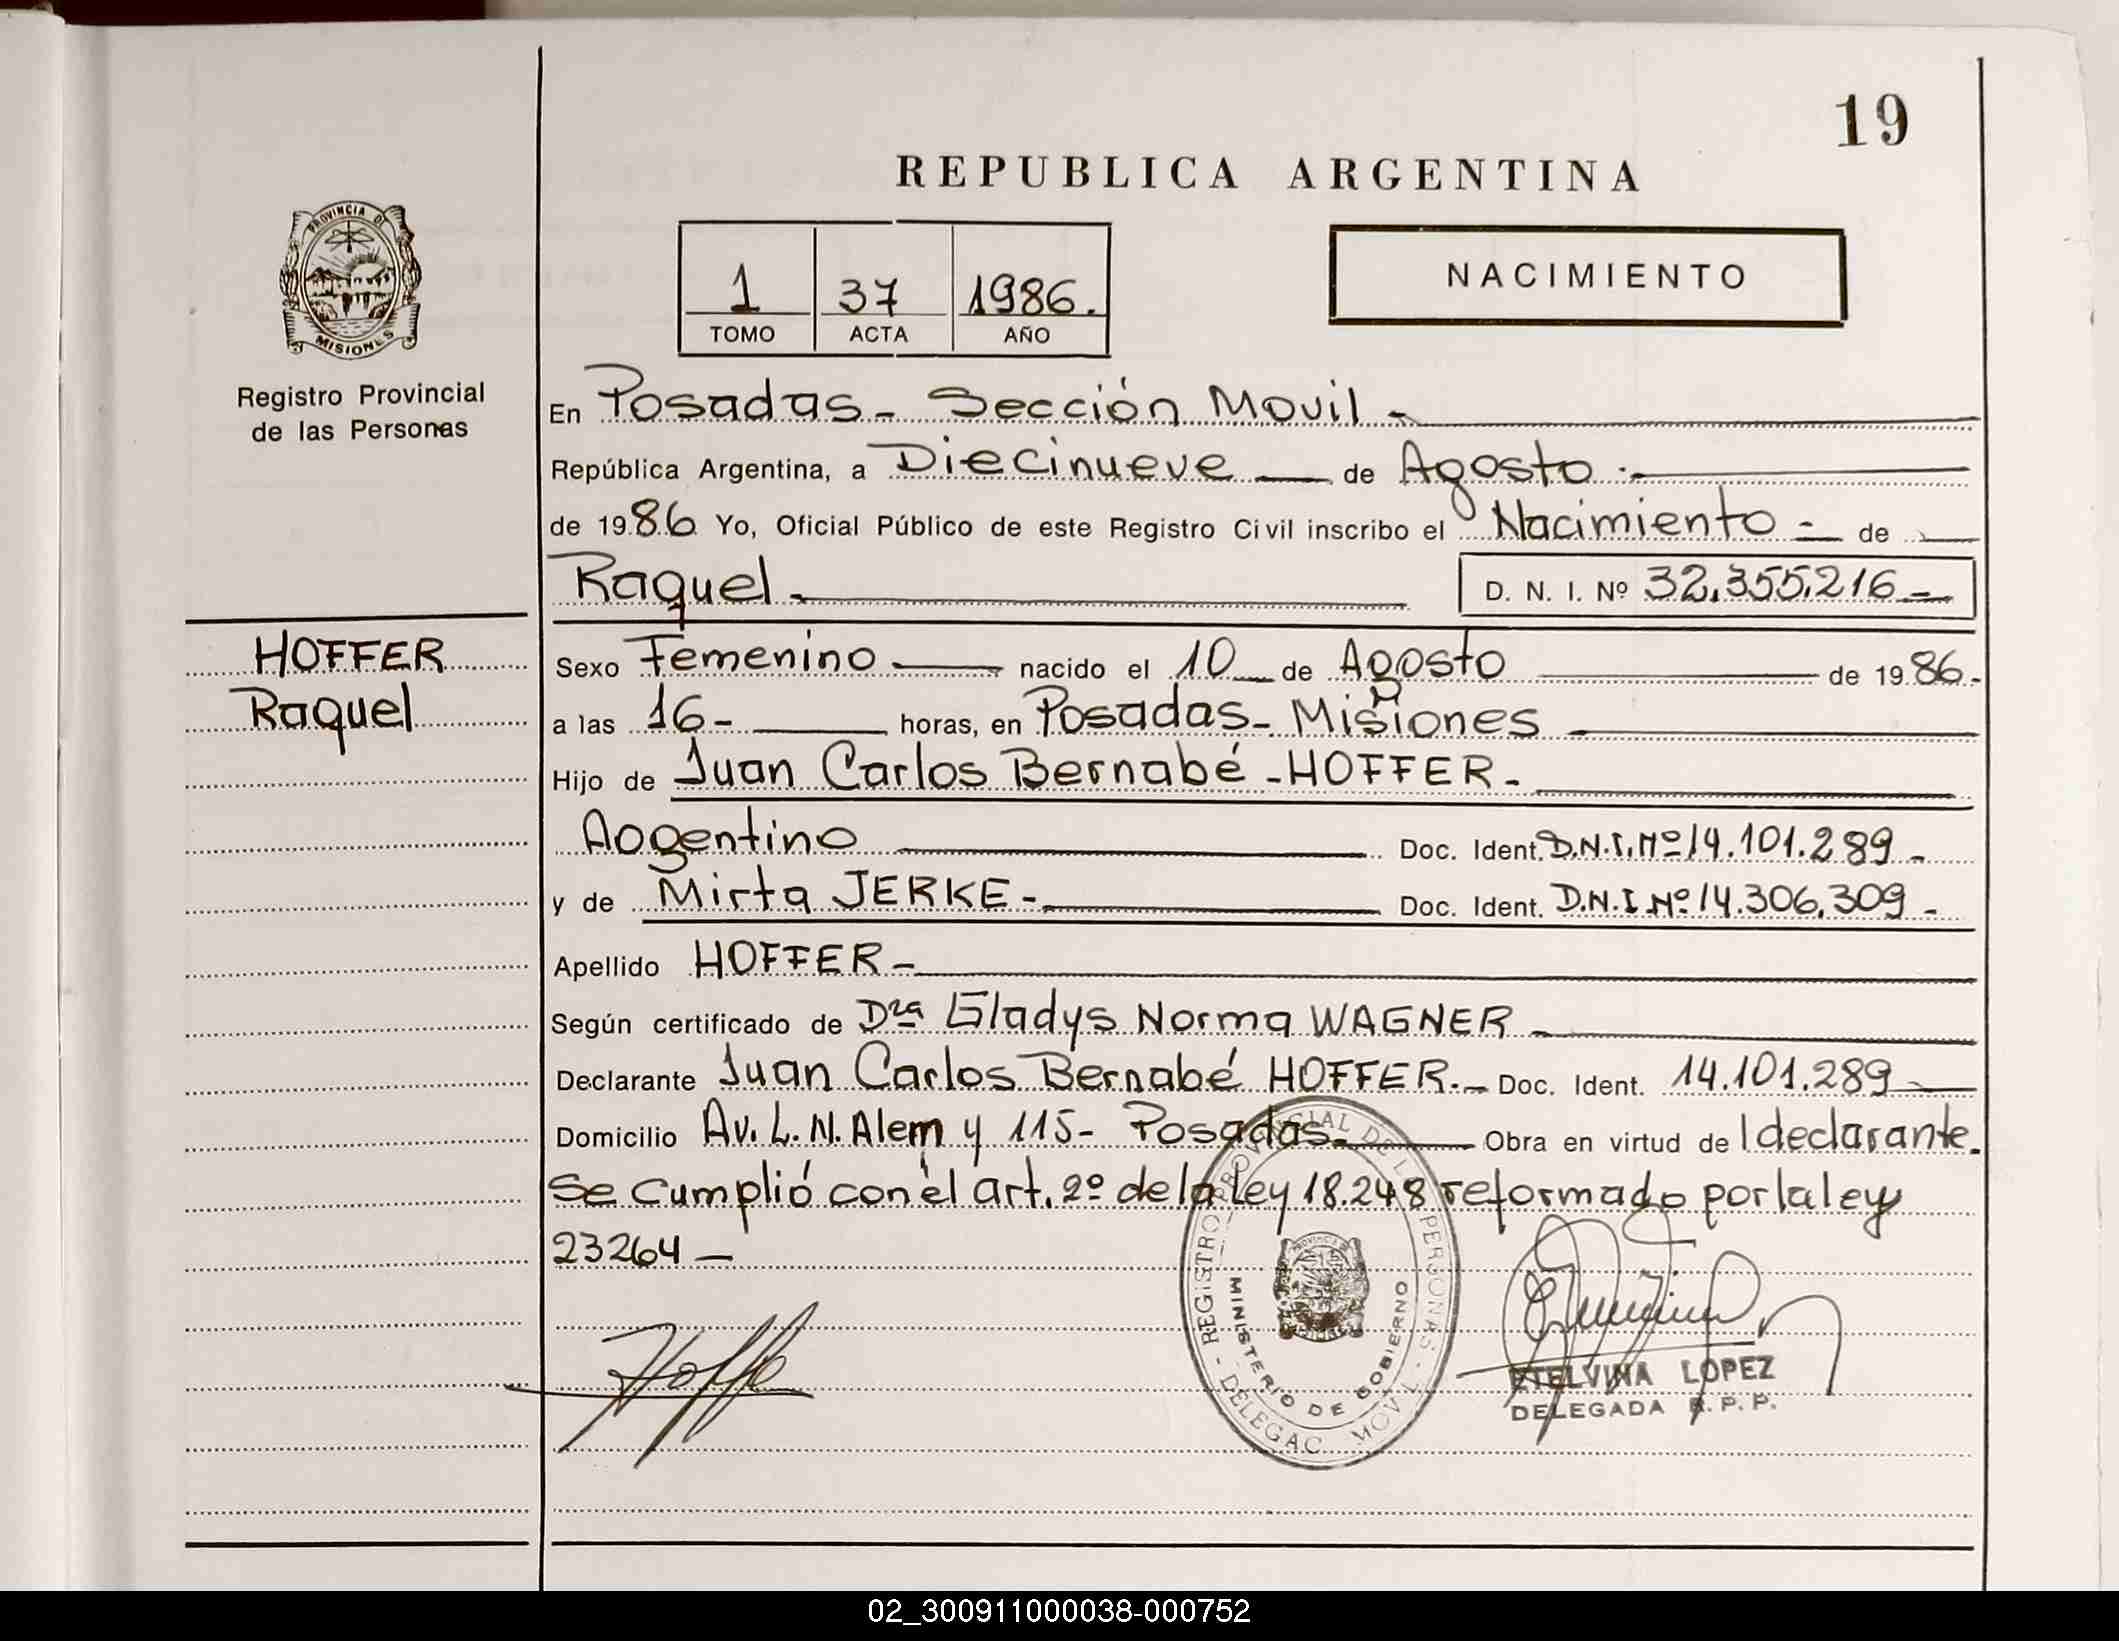 19
REPUBLICA ARGENTINA
PROVINCIA DE
MISIONES
Registro Provincial
de las Personas
1 37 1986.
TOMO ACTA AÑO
NACIMIENTO
En Posadas - Sección Movil -
República Argentina, a Diecinueve — de Agosto.-
de 1986 Yo, Oficial Público de este Registro Civil inscribo el Nacimiento - de
Raquel - D. N. I. Nº 32.355.216 -
HOFFER
Raquel
Sexo Femenino — nacido el 10 de Agosto — de 1986.-
a las 16- horas, en Posadas - Misiones -
Hijo de Juan Carlos Bernabé - HOFFER -
Aogentino — Doc. Ident. D.N.I. Nº 14.101.289 -
y de Mirta JERKE - Doc. Ident. D.N.I. Nº 14.306.309 -
Apellido HOFFER -
Según certificado de Dra Gladys Norma WAGNER -
Declarante Juan Carlos Bernabé HOFFER.- Doc. Ident. 14.101.289 -
Domicilio Av. L. N. Alem y 115 - Posadas - Obra en virtud de l declarante.
Se cumplió con el art. 2º de la Ley 18.248 reformado por la ley
23264 -
Hoffe
REGISTRO PROVINCIAL DE LAS PERSONAS - DELEGAC. MOVIL -
MINISTERIO DE GOBIERNO
ETELVINA LOPEZ
DELEGADA R. P. P.
02_300911000038-000752